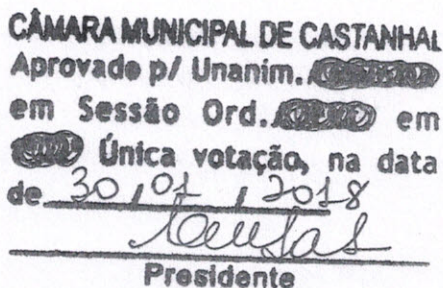 CÂMARA MUNICIPAL DE CASTANHAL
Aprovado p/ Unanim.
em Sessão Ord. em
Única votação, na data
de 30 / 01 / 2018
Presidente